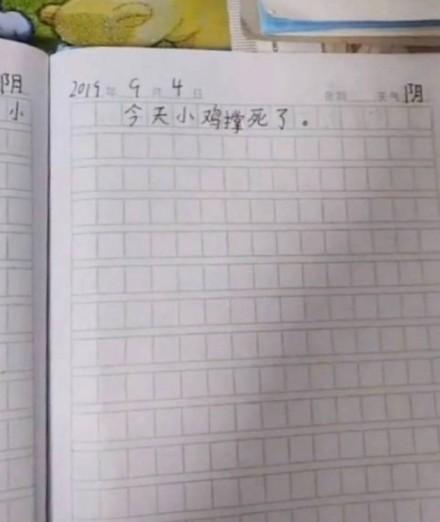 阴
小
2019年 9月 4日 天气 阴
今天小鸡撑死了。